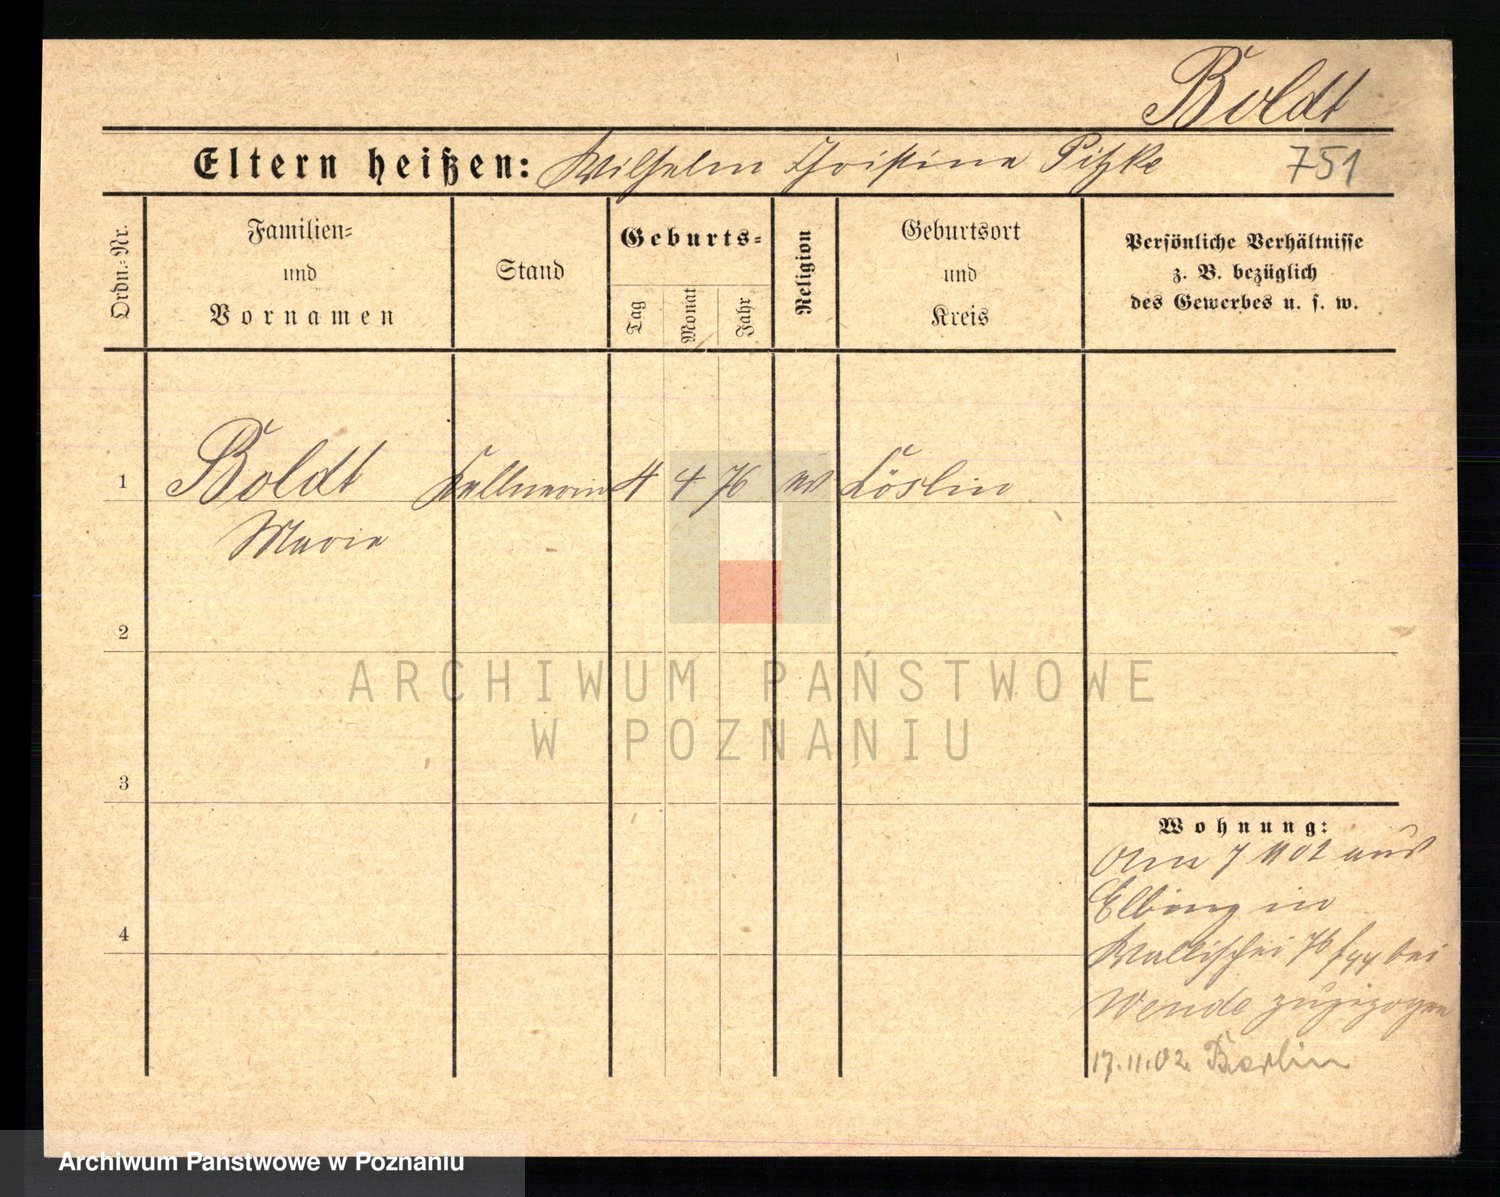 Boldt
Eltern heißen: Wilhelm Christine Pitzke
751
Ordn.-Nr.
Familien-
und
Vornamen
Stand
Geburts-
Tag
Monat
Jahr
Religion
Geburtsort
und
Kreis
Persönliche Verhältnisse
z. B. bezüglich
des Gewerbes u. s. w.
1
Boldt Kellnerin 4 4 76 ev Cöslin
Marie
2
ARCHIWUM PAŃSTWOWE
W POZNANIU
3
4
Wohnung:
Am 7 11 02 aus
Elbing in
Wallischei 76 bei
Wende zugezogen
17.11.02 Berlin
Archiwum Państwowe w Poznaniu